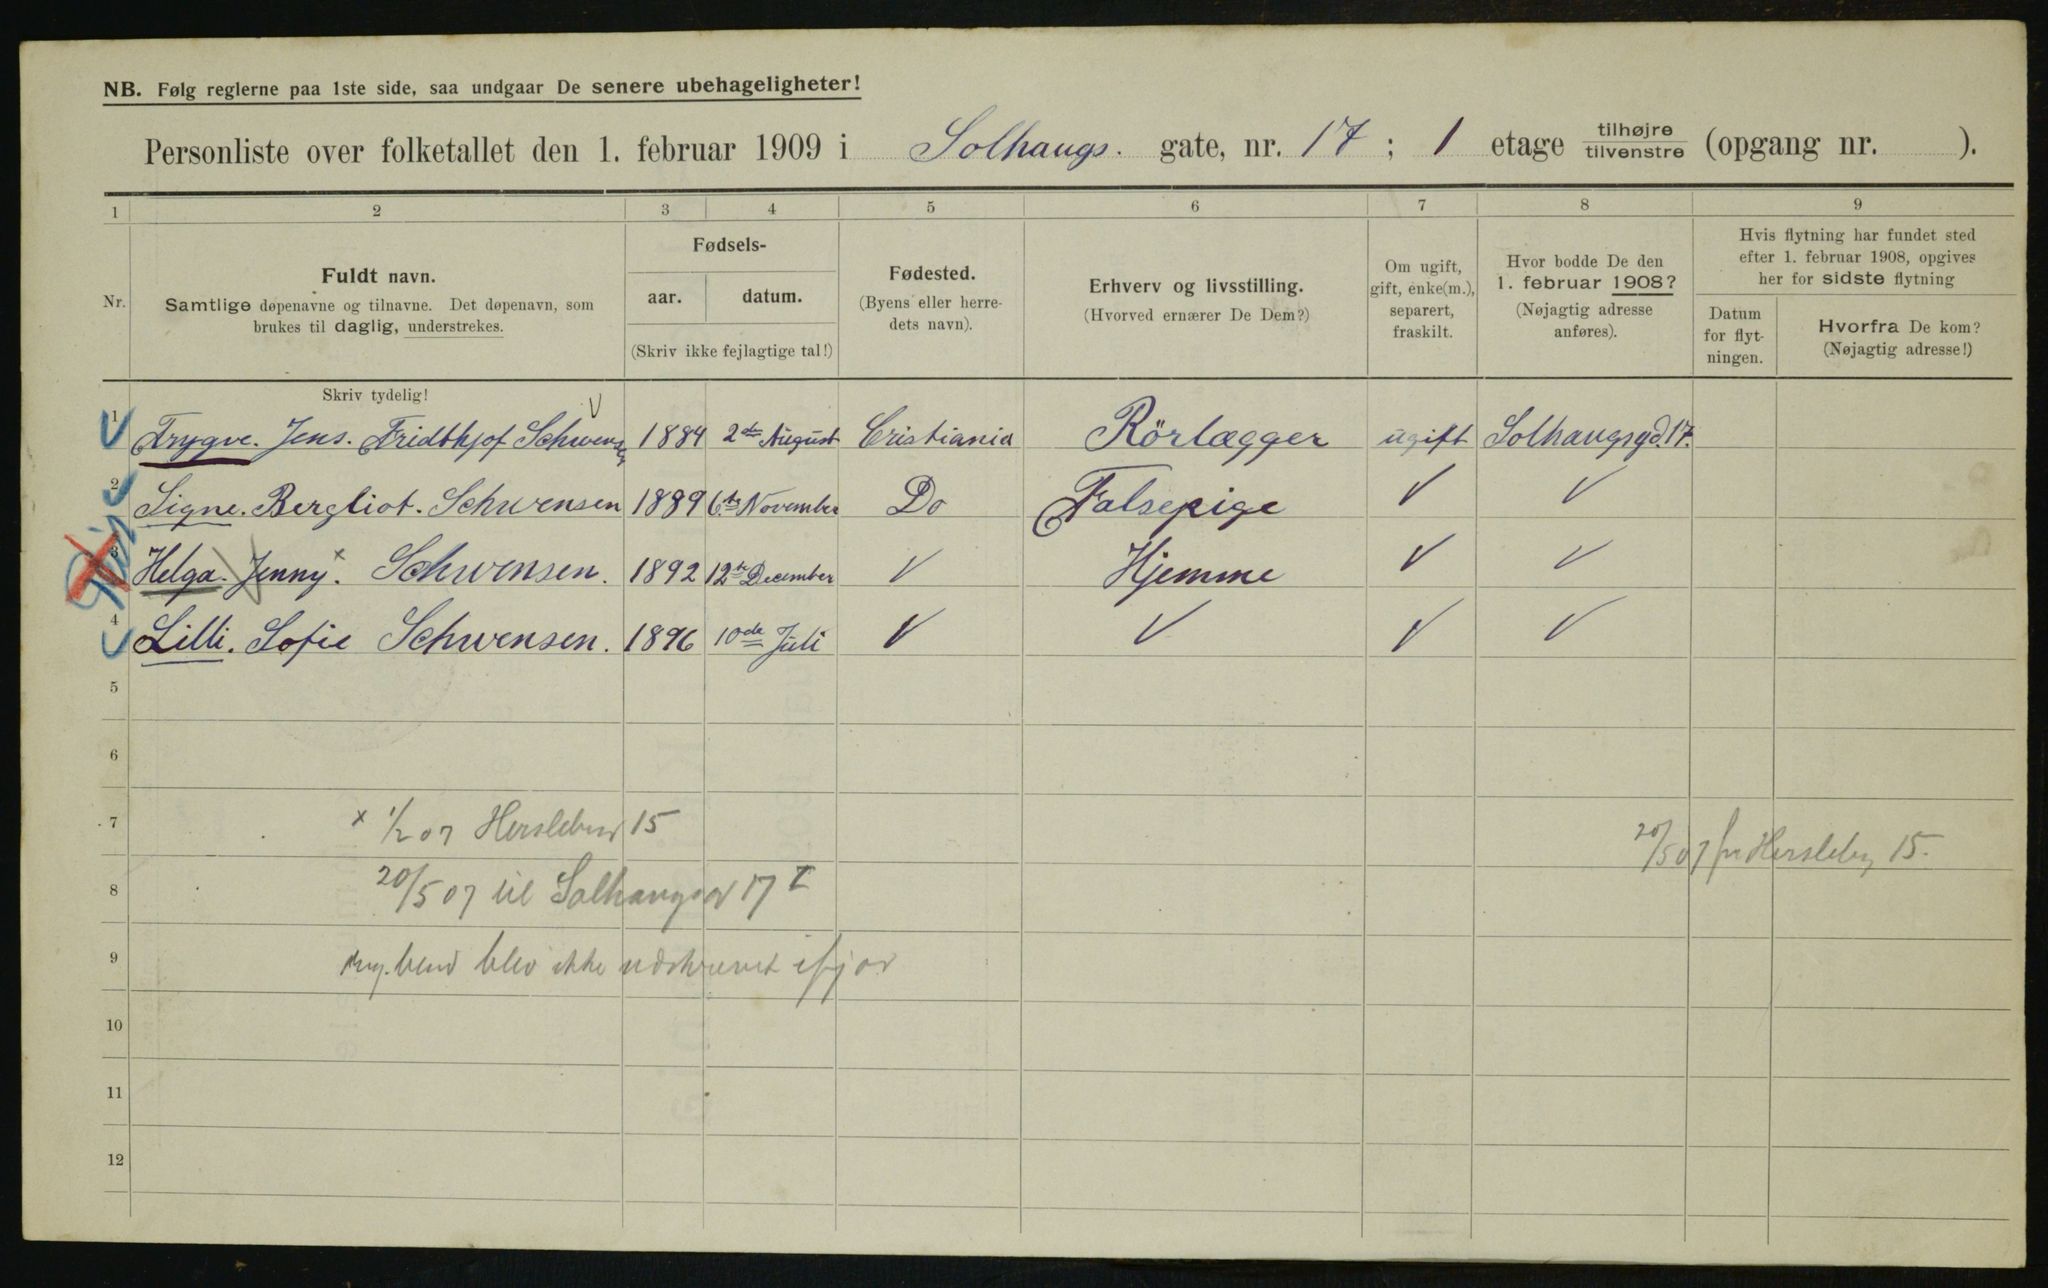 NB. Følg reglerne paa 1ste side, saa undgaar De senere ubehageligheter!
Personliste over folketallet den 1. februar 1909 i Solhaugs. gate, nr. 17 ; 1 etage tilhøjre/tilvenstre (opgang nr. ).
1 2 3 4 5 6 7 8 9
Nr.
Fuldt navn.
Samtlige døpenavne og tilnavne. Det døpenavn, som
brukes til daglig, understrekes.
Fødsels-
aar. datum.
(Skriv ikke fejlagtige tal!)
Fødested.
(Byens eller herre-
dets navn).
Erhverv og livsstilling.
(Hvorved ernærer De Dem?)
Om ugift,
gift, enke(m.),
separert,
fraskilt.
Hvor bodde De den
1. februar 1908?
(Nøjagtig adresse
anføres).
Hvis flytning har fundet sted
efter 1. februar 1908, opgives
her for sidste flytning
Datum
for flyt-
ningen.
Hvorfra De kom?
(Nøjagtig adresse!)
Skriv tydelig!
1 Trygve. Jens. Fridthjof Schwensen 1884 2de August Cristiania Rörlægger ugift Solhaugsgd. 17.
2 Signe. Bergliot. Schwensen 1889 6te November Do Falsepige √ √
3 Helga. Jenny. x Schwensen. 1892 12te December √ Hjemme √ √
4 Lilli. Sofie Schwensen. 1896 10de Juli √ √ √ √
5
6
7 x 1/2 07 Herslebsg 15
20/5 07 fra Herslebsg 15.
8 20/5 07 til Solhaugsg 17 I
9 blev ikke udskrevet ifjor
10
11
12